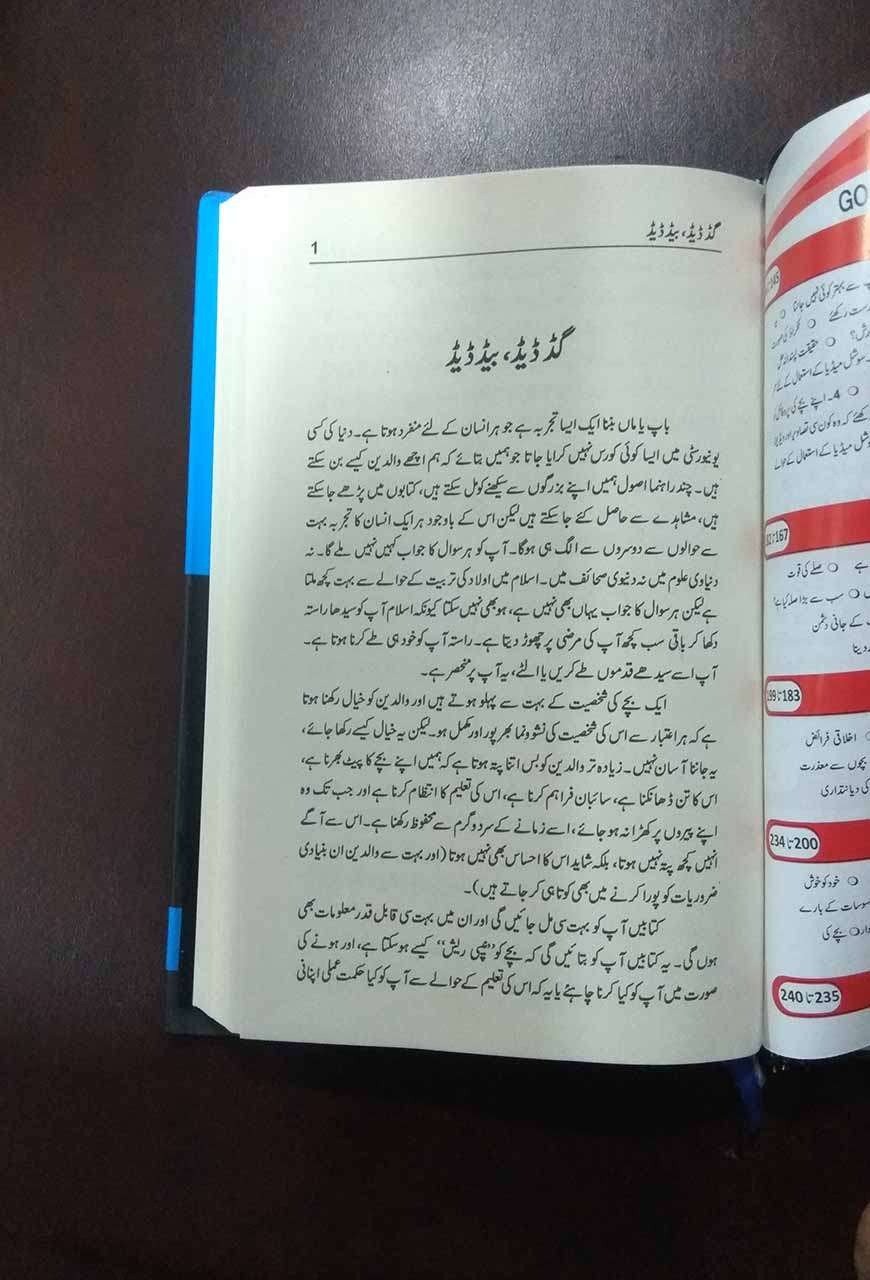 گڈ ڈیڈ، بیڈ ڈیڈ
1
گڈ ڈیڈ، بیڈ ڈیڈ
باپ یا ماں بننا ایک ایسا تجربہ ہے جو ہر انسان کے لئے منفرد ہوتا ہے۔ دنیا کی کسی
یونیورسٹی میں ایسا کوئی کورس نہیں کرایا جاتا جو ہمیں بتائے کہ ہم اچھے والدین کیسے بن سکتے
ہیں۔ چند راہنما اصول ہمیں اپنے بزرگوں سے سیکھنے کو مل سکتے ہیں، کتابوں میں پڑھے جا سکتے
ہیں، مشاہدے سے حاصل کئے جا سکتے ہیں لیکن اس کے باوجود ہر ایک انسان کا تجربہ بہت
سے حوالوں سے دوسروں سے الگ ہی ہوگا۔ آپ کو ہر سوال کا جواب کہیں نہیں ملے گا۔ نہ
دنیاوی علوم میں نہ دنیوی صحائف میں۔ اسلام میں اولاد کی تربیت کے حوالے سے بہت کچھ ملتا
ہے لیکن ہر سوال کا جواب یہاں بھی نہیں ہے، ہو بھی نہیں سکتا کیونکہ اسلام آپ کو سیدھا راستہ
دکھا کر باقی سب کچھ آپ کی مرضی پر چھوڑ دیتا ہے۔ راستہ آپ کو خود ہی طے کرنا ہوتا ہے۔
آپ اسے سیدھے قدموں طے کریں یا الٹے، یہ آپ پر منحصر ہے۔
ایک بچے کی شخصیت کے بہت سے پہلو ہوتے ہیں اور والدین کو خیال رکھنا ہوتا
ہے کہ ہر اعتبار سے اس کی شخصیت کی نشوونما بھرپور اور مکمل ہو۔ لیکن یہ خیال کیسے رکھا جائے،
یہ جاننا آسان نہیں۔ زیادہ تر والدین کو بس اتنا پتہ ہوتا ہے کہ ہمیں اپنے بچے کا پیٹ بھرنا ہے،
اس کا تن ڈھانکنا ہے، سائبان فراہم کرنا ہے، اس کی تعلیم کا انتظام کرنا ہے اور جب تک وہ
اپنے پیروں پر کھڑا نہ ہو جائے، اسے زمانے کے سرد و گرم سے محفوظ رکھنا ہے۔ اس سے آگے
انہیں کچھ پتہ نہیں ہوتا، بلکہ شاید اس کا احساس بھی نہیں ہوتا (اور بہت سے والدین ان بنیادی
ضروریات کو پورا کرنے میں بھی کوتاہی کر جاتے ہیں)۔
کتابیں آپ کو بہت سی مل جائیں گی اور ان میں بہت سی قابل قدر معلومات بھی
ہوں گی۔ یہ کتابیں آپ کو بتائیں گی کہ بچے کو ”نیپی ریش“ کیسے ہوسکتا ہے، اور ہونے کی
صورت میں آپ کو کیا کرنا چاہئے یا یہ کہ اس کی تعلیم کے حوالے سے آپ کو کیا حکمت عملی اپنانی
GO
سے بہتر کوئی نہیں جانتا
حقیقت پسندانہ
سوشل میڈیا کے استعمال کے لئے
4۔ اپنے بچے کی پروفائل
کہ وہ کون سی تصاویر اور
سوشل میڈیا کے استعمال کے
167
ہے ○ صلے کی قوت
○ سب سے بڑا صلہ کیا ہے؟
کے جانی دشمن
دینا
183تا199
○ اخلاقی فرائض
بچوں سے معذرت
کی دیانتداری
200تا234
○ خود کو خوش
سوسات کے بارے
○ بچے کی
235تا240